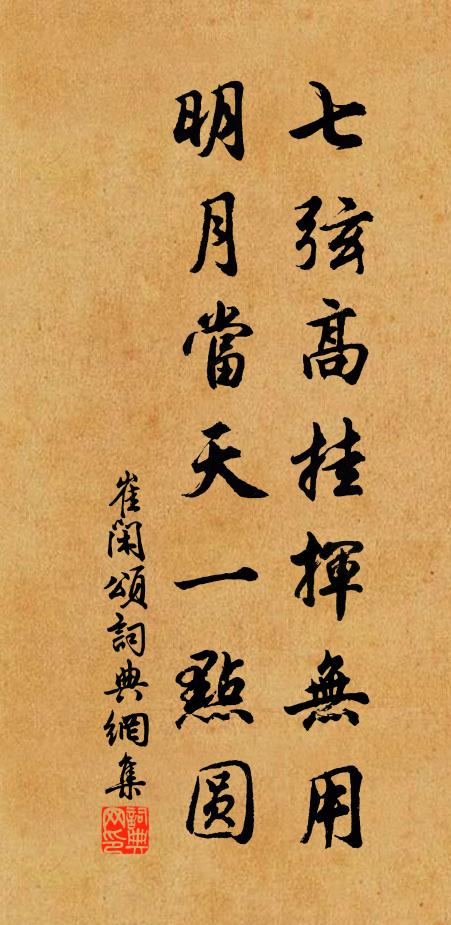 七弦高挂揮無用
明月當天一點圆
崔閑頌詞典網集
詞典網印